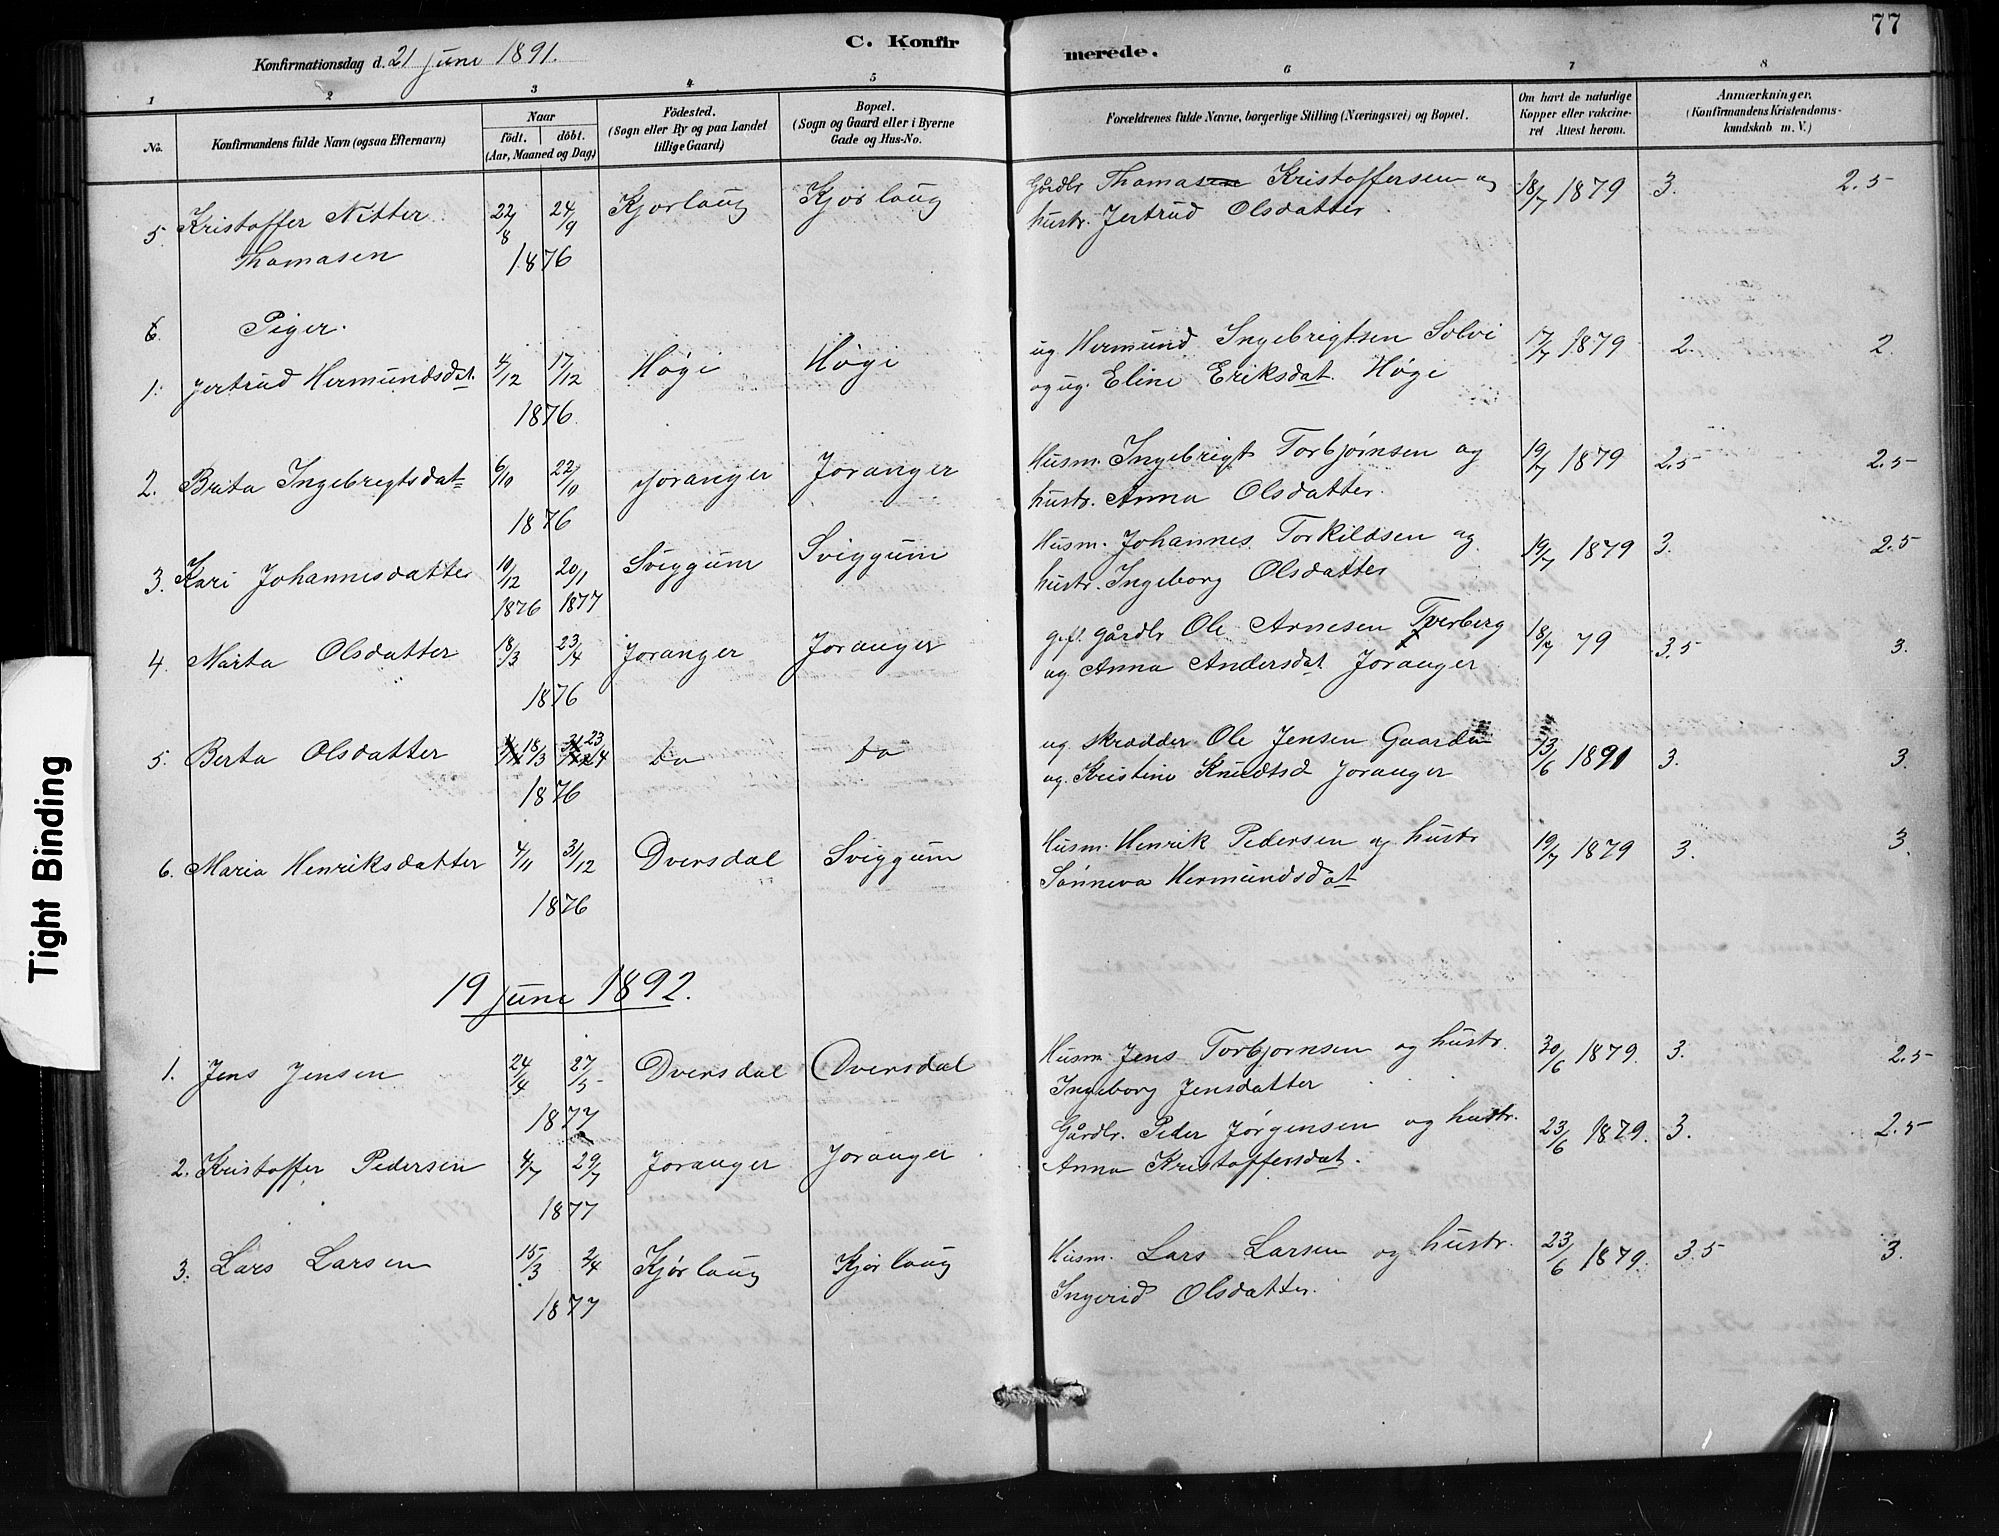 77
Konfirmationsdag d. 21 Juni 1891.
C. Konfirmerede.
1 2 3 4 5 6 7 8
No.
Konfirmandens fulde Navn (ogsaa Efternavn)
Naar
födt. döbt.
(Aar, Maaned og Dag)
Födested.
(Sogn eller By og paa Landet
tillige Gaard)
Bopæl.
(Sogn og Gaard eller i Byerne
Gade og Hus-No.
Forældrenes fulde Navne, borgerlige Stilling (Næringsvei) og Bopæl.
Om havt de naturlige
Kopper eller vakcine-
ret Attest herom.
Anmærkninger.
(Konfirmandens Kristendoms-
kundskab m. V.)
5. Kristoffer Nitter 22/8 24/9 Kjørlaug Kjørlaug Gårdbr Thomasen Kristoffersen og 18/7 1879 3. 2.5
Thomasen 1876 hustr. Jertrud Olsdatter.
6. Piger.
1. Jertrud Hermundsdat. 4/12 17/12 Høgi Høgi ug Hermund Ingebrigtsen Solvi 17/7 1879 2. 2.
1876 og ug. Eline Eriksdat. Høgi
2. Brita Ingebrigtsdat 6/10 22/10 Joranger Joranger Husm. Ingebrigt Torbjørnsen og 19/7 1879 2.5 2.5
1876 hustr. Anna Olsdatter.
3. Kari Johannesdatter 10/12 20/1 Sviggum Sviggum Husm. Johannes Torkildsen og 19/7 1879 3. 2.5
1876 1877 hustr. Ingeborg Olsdatter
4. Marta Olsdatter 18/3 23/4 Joranger Joranger gft. gårdbr Ole Arnesen Tverberg 18/7 79 3.5 3.
1876 ug Anna Andersdat Joranger
5. Berta Olsdatter 18/3 23/4 Do Do ug skrædder Ole Jensen Gaarden 13/6 1891 3. 3.
1876 ug. Kristine Knudtsd Joranger
6. Maria Henriksdatter 4/11 31/12 Dversdal Sviggum Husm. Henrik Pedersen og hustr 19/7 1879 3. 3.
1876 Sønneva Hermundsdat
19 Juni 1892.
1. Jens Jensen 24/4 27/5 Dversdal Dversdal Husm. Jens Torbjørnsen og hustr. 30/6 1879. 3. 2.5
1877 Ingeborg Jensdatter
2. Kristoffer Pedersen 4/7 29/7 Joranger Joranger Gårdbr. Peder Jørgensen og hustr. 23/6 1879. 3. 2.5
1877 Anna Kristoffersdat.
3. Lars Larsen 15/3 2/4 Kjørlaug Kjørlaug Husm. Lars Larsen og hustr. 23/6 1879. 3.5 3.
1877 Ingerid Olsdatter.
Tight Binding